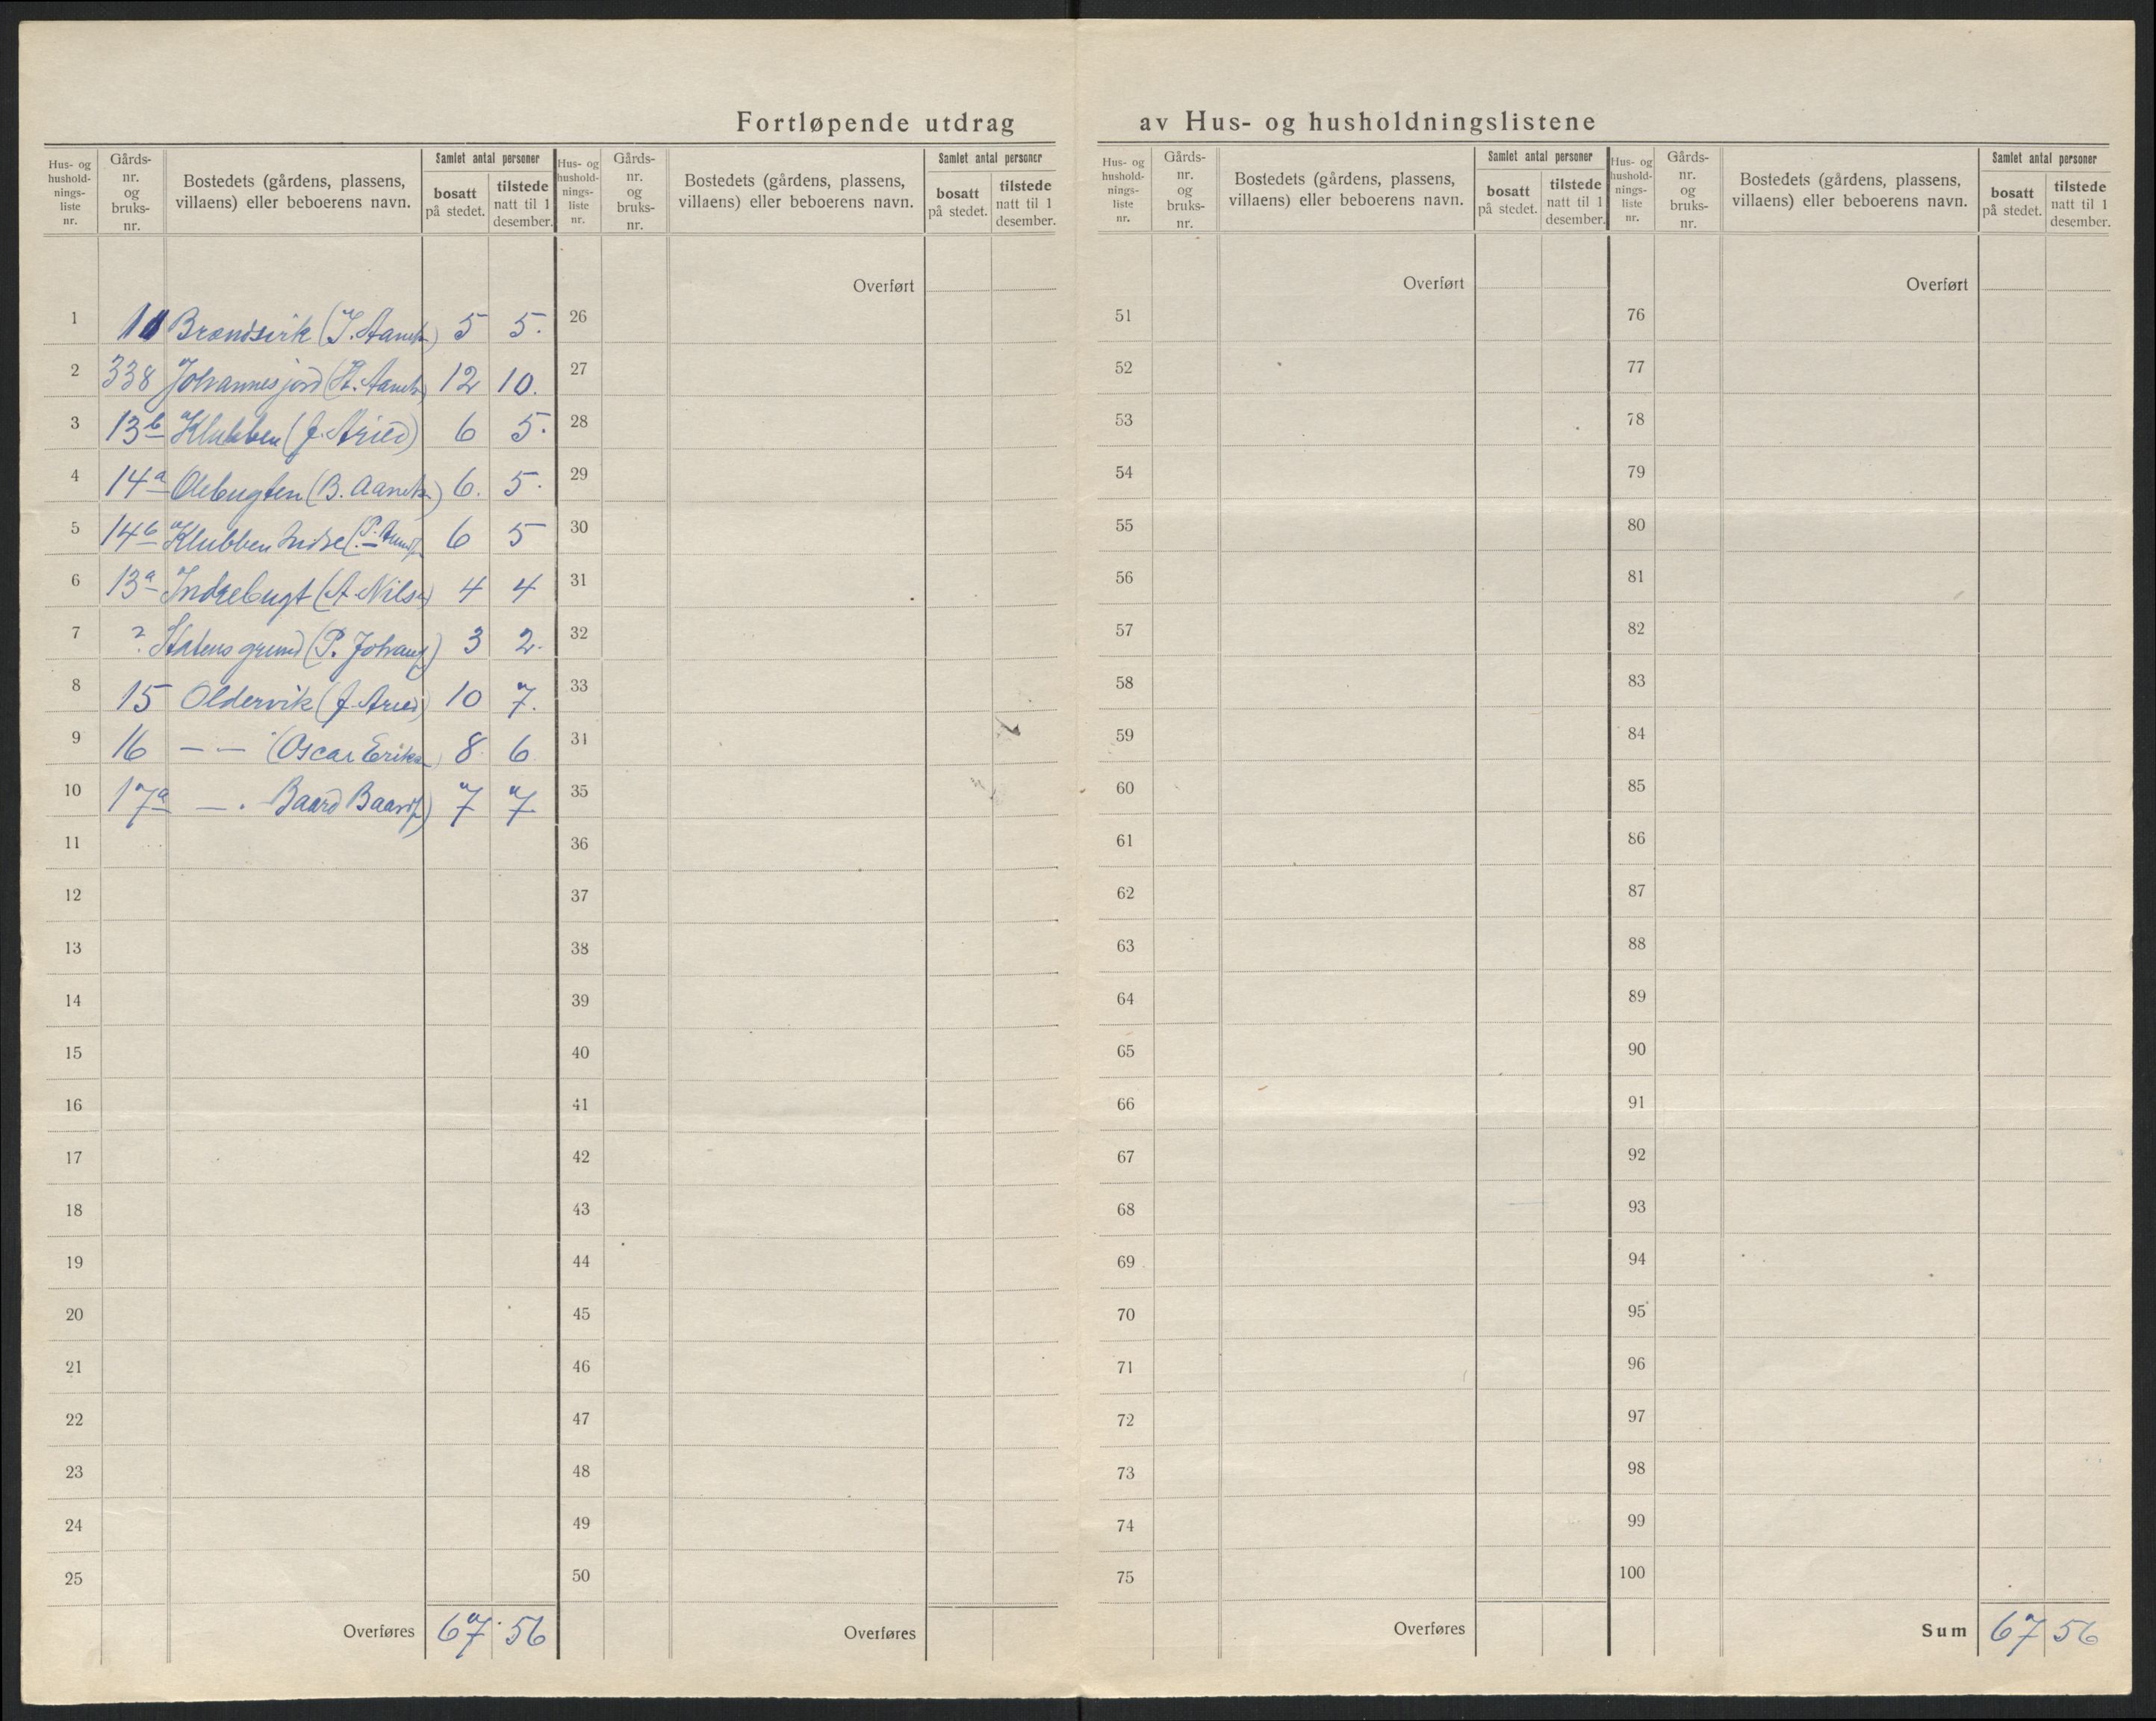 Fortløpende utdrag av Hus- og husholdningslistene
Hus- og hushold-nings-liste nr. Gårds-nr. og bruks-nr. Bostedets (gårdens, plassens, villaens) eller beboerens navn. Samlet antal personer bosatt på stedet. tilstede natt til 1 desember.
Hus- og hushold-nings-liste nr. Gårds-nr. og bruks-nr. Bostedets (gårdens, plassens, villaens) eller beboerens navn. Samlet antal personer bosatt på stedet. tilstede natt til 1 desember.
Hus- og hushold-nings-liste nr. Gårds-nr. og bruks-nr. Bostedets (gårdens, plassens, villaens) eller beboerens navn. Samlet antal personer bosatt på stedet. tilstede natt til 1 desember.
Hus- og hushold-nings-liste nr. Gårds-nr. og bruks-nr. Bostedets (gårdens, plassens, villaens) eller beboerens navn. Samlet antal personer bosatt på stedet. tilstede natt til 1 desember.
Overført Overført Overført
1 5 5. 26 51 76
2 338 Johannesjord 12 10. 27 52 77
3 13b Klubben 6 5. 28 53 78
4 14a Olebugten (B. 6. 5. 29 54 79
5 14b Klubben Indre 6 5 30 55 80
6 13a Indrebugt (A Nils 4 4 31 56 81
7 ? Statens grund (P. 3 2. 32 57 82
8 15 Oldervik 10 7. 33 58 83
9 16 — — (Oscar Eriks 8 6 34 59 84
10 17a — . Baard 7 7 35 60 85
11 36 61 86
12 37 62 87
13 38 63 88
14 39 64 89
15 40 65 90
16 41 66 91
17 42 67 92
18 43 68 93
19 44 69 94
20 45 70 95
21 46 71 96
22 47 72 97
23 48 73 98
24 49 74 99
25 50 75 100
Overføres 67 56 Overføres Overføres Sum 67 56